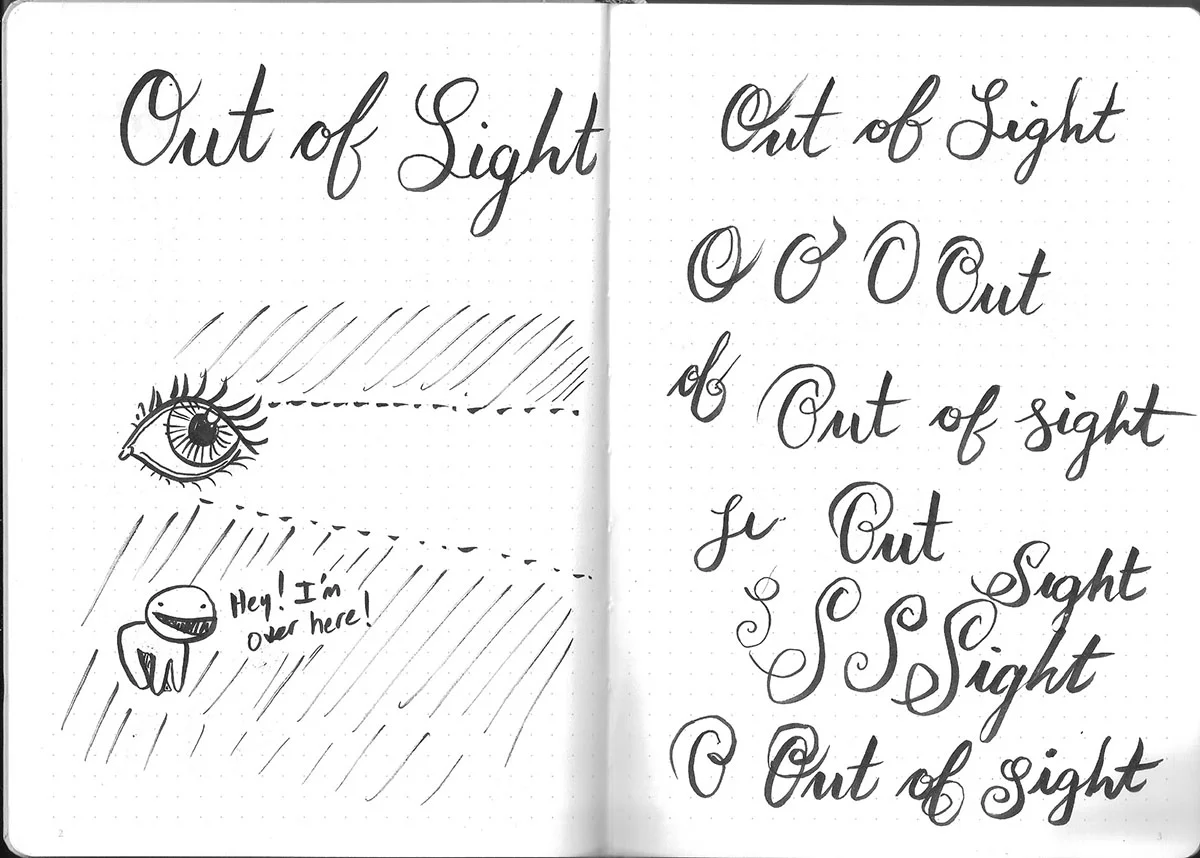 Out of Sight
Hey! I'm
over here!
2
Out of Sight
O O O Out
of
Out of sight
Out
Sight
S S S Sight
O Out of sight
3